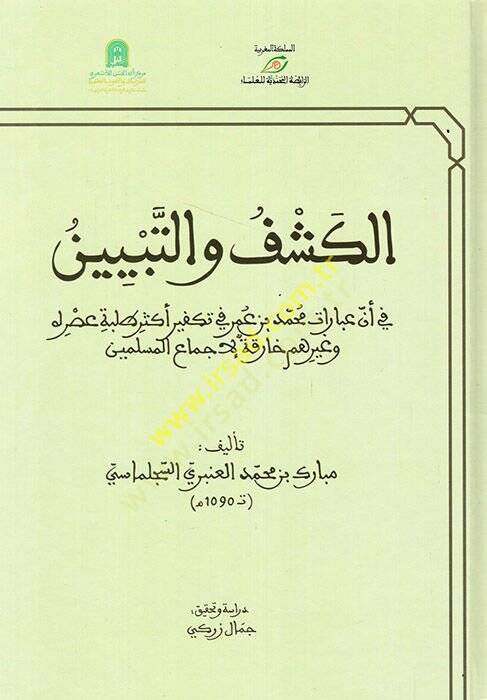 المملكة المغربية
الرابطة المحمدية للعلماء
الكَشْفُ والتَّبْيِينُ
في أنّ عبارات محمّد بن عمر في تكفير أكثر طلبة عصره
وغيرهم خارقةٌ لإجماع المسلمين
تأليف:
مبارك بن محمد العنبري السِّجلماسيّ
(ت 1090م)
دراسة وتحقيق:
جمال زركي
www.irsad.com.tr